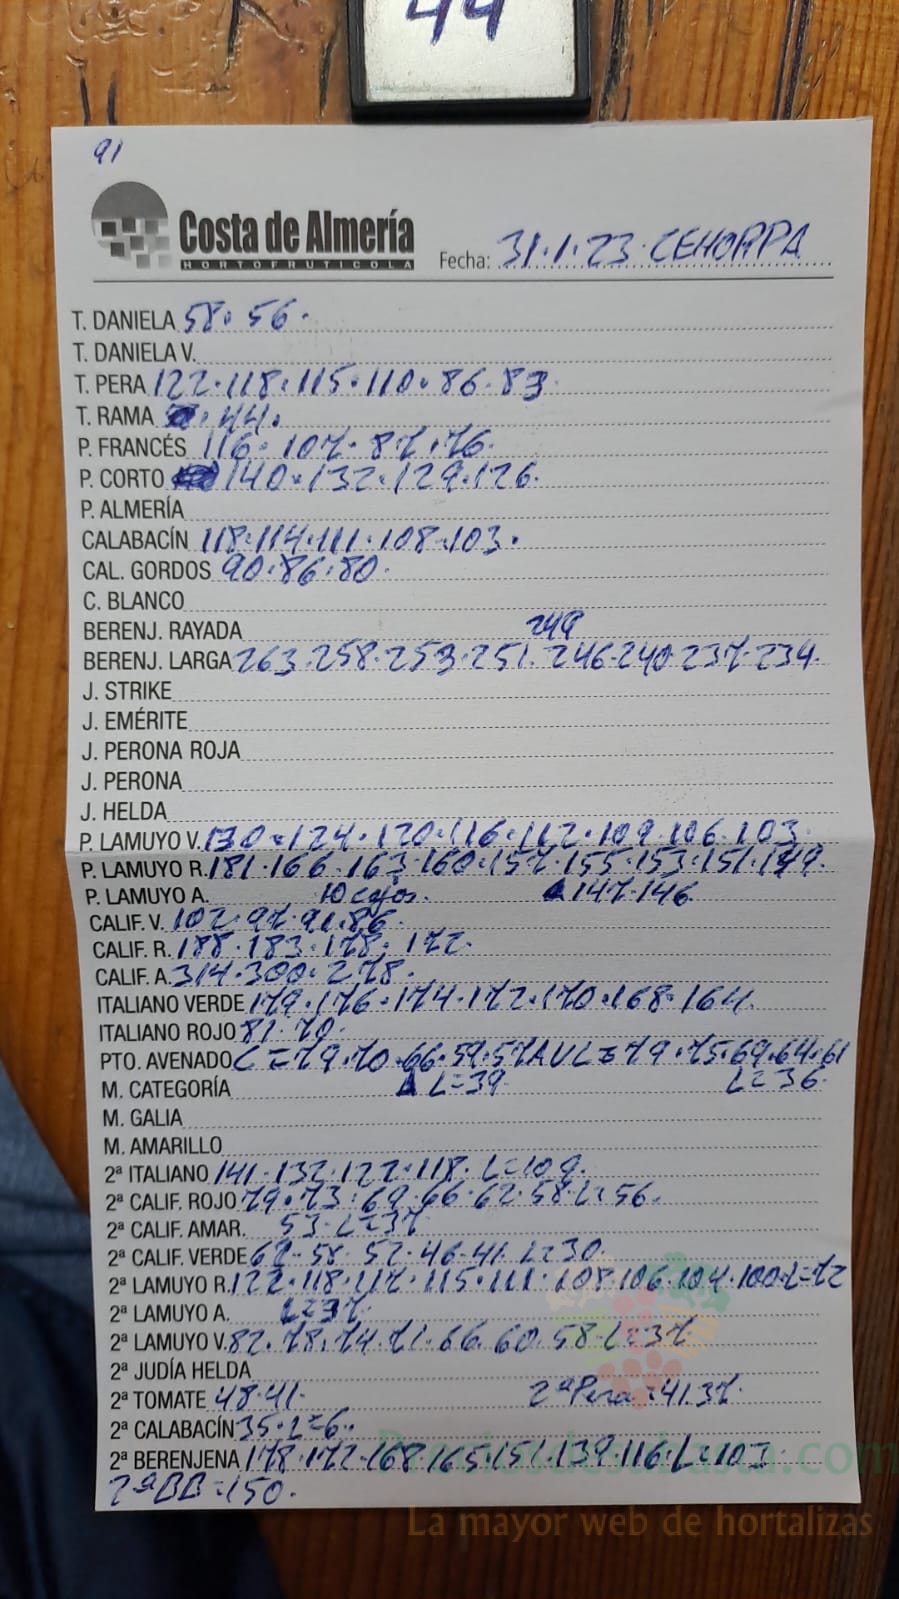 44
91
Costa de Almería
HORTOFRUTICOLA
Fecha: 31.1.23 CEHORPA
T. DANIELA 58. 56.
T. DANIELA V.
T. PERA 122.118.115.110.86.83
T. RAMA 44.
P. FRANCÉS 116. 107. 87.76.
P. CORTO 140.132.129.126.
P. ALMERÍA
CALABACÍN 118.114.111.108.103.
CAL. GORDOS 90.86.80.
C. BLANCO
BERENJ. RAYADA
249
BERENJ. LARGA 263.258.253.251.246.240.237.234.
J. STRIKE
J. EMÉRITE
J. PERONA ROJA
J. PERONA
J. HELDA
P. LAMUYO V. 130.124.120.116.112.109.106.103.
P. LAMUYO R. 181.166.163.160.157.155.153.151.149.
P. LAMUYO A. 10 cajas. 147.146.
CALIF. V. 102.97.91.86.
CALIF. R. 188.183.178.172.
CALIF. A. 314.300.278.
ITALIANO VERDE 179.176.174.172.170.168.164.
ITALIANO ROJO 81.70.
PTO. AVENADO L=79.70.66.59.57 AVL=79.75.69.64.61
M. CATEGORÍA L=39. L=36.
M. GALIA
M. AMARILLO
2ª ITALIANO 141.132.122.118. L=109.
2ª CALIF. ROJO 79.73.69.66.62.58.L=56.
2ª CALIF. AMAR. 53.L=37
2ª CALIF. VERDE 62.58.52.46.41. L=30.
2ª LAMUYO R. 122.118.117.115.111.108.106.104.100.L=72
2ª LAMUYO A. L=37.
2ª LAMUYO V. 82.78.74.71.66.60.58.L=37
2ª JUDÍA HELDA
2ª TOMATE 48.41. 2ª Pera=41.37.
2ª CALABACÍN 35.L=6.
2ª BERENJENA 178.172.168.165.151.139.116.L=103
2ª BB=150.
La mayor web de hortalizas